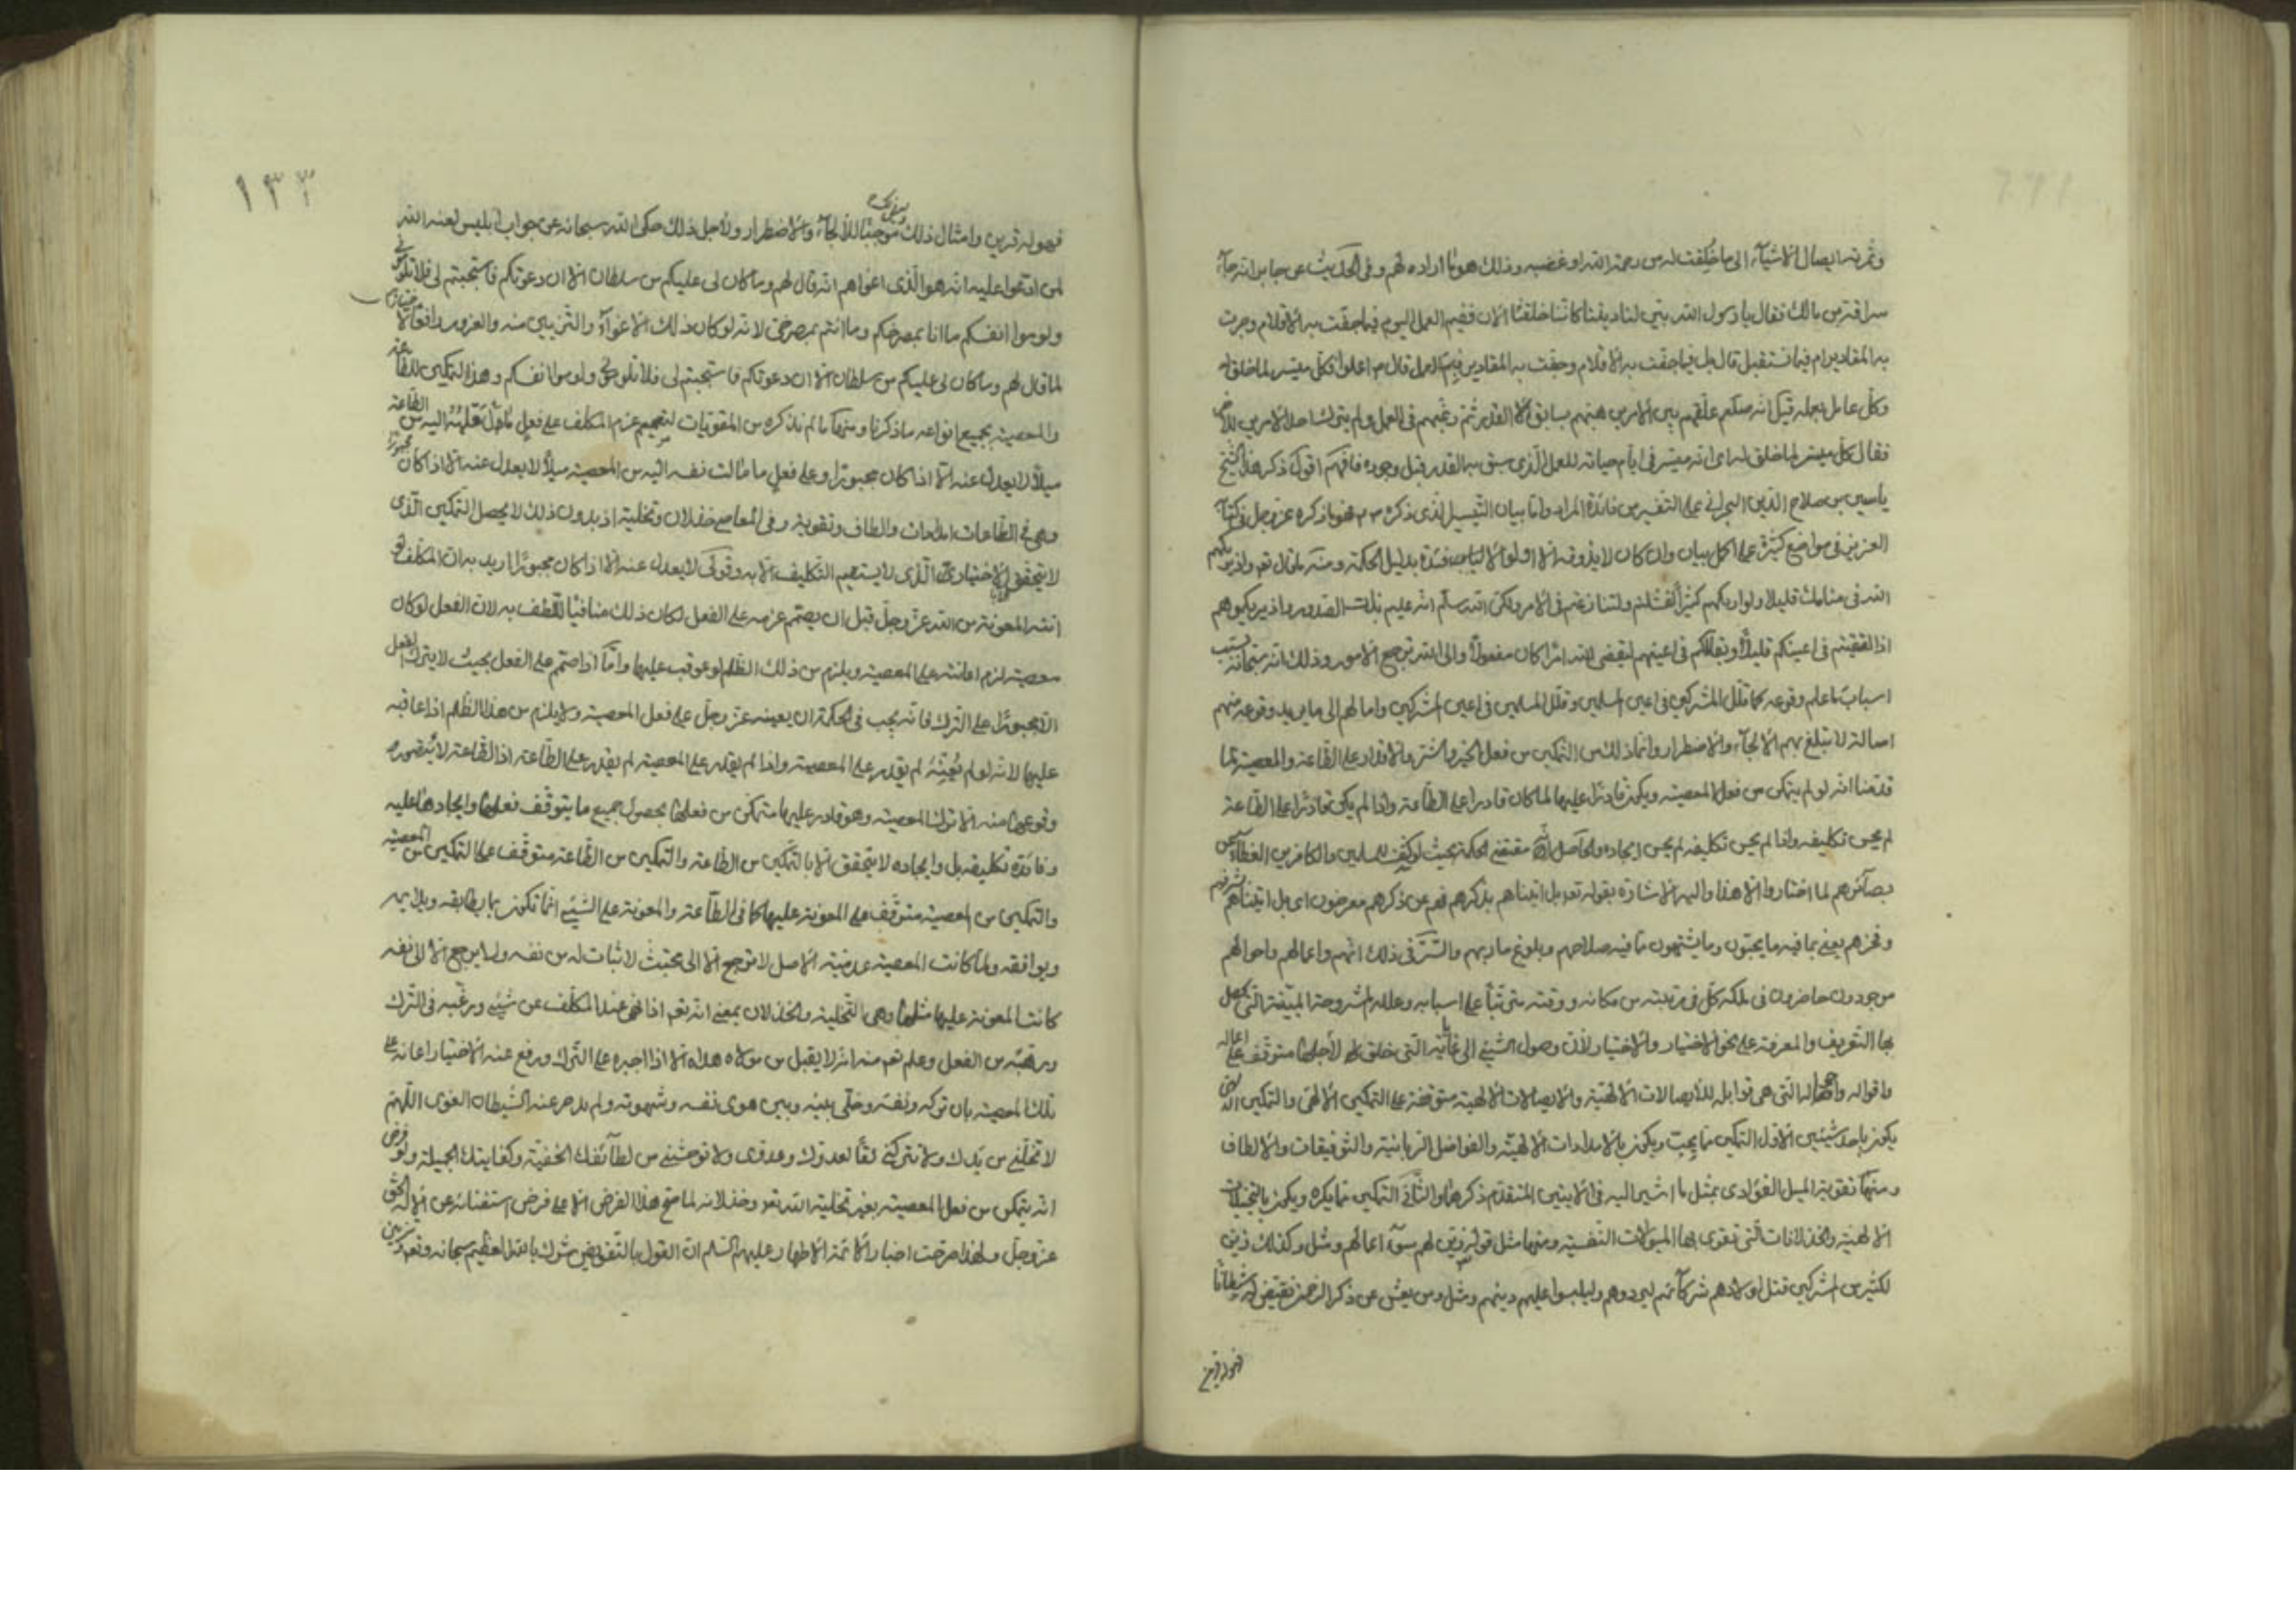 وثمرته ايصال الاشياء الى ما خلقت له من رحمة الله او غضبه وذلك هو ما اراده لهم وفى الحديث عن جابر انه جاء
سراقة بن مالك فقال يا رسول الله بيّن لنا ديننا كاننا خلقنا الان ففيم العمل اليوم فيما جفت به الاقلام وجرت
به المقادير ام فيما نستقبل قال بل فيما جفت به الاقلام وجرت به المقادير قال ففيم العمل قال اعملوا فكل ميسر لما خلق له
وكل عامل بعمله قيل انه صلّم علّقهم بين الامرين رهبهم بسابق القدر ثم رغبهم فى العمل ولم يترك احد الامرين للاخر
فقال كل ميسر لما خلق له اى انه ميسر فى ايام حياته للعمل الذى سبق به القدر قبل وجوده فافهم اقول ذكر هذا الشيخ
ياسين بن صلاح الدين البحرانى على التفسير من فائدة المراد واما بيان التيسير الذى ذكره هو ما ذكره عز وجل فى كتابه
العزيز فى مواضع كثيرة على اكمل بيان وان كان لا يذوقه الا اولوا الالباب بدليل الحكمة ومنه ما قال تع واذ يريكهم
الله فى منامك قليلا ولو اريكهم كثيرا لفشلتم ولتنازعتم فى الامر ولكن الله سلم انه عليم بذات الصدور واذ يريكموهم
اذ التقيتم فى اعينكم قليلا ويقللكم فى اعينهم ليقضى الله امرا كان مفعولا والى الله ترجع الامور وذلك انه سبحانه يسبب
اسباب ما علم وقوعه كما قلل المشركين فى اعين المسلمين وقلل المسلمين فى اعين المشركين وامالهم الى ما يريد وقوعه منهم
امالة لا تبلغ بهم الالجاء والاضطرار وانما ذلك من التمكين من فعل الخير والشر والاقدار على الطاعة والمعصية لما
قدمنا انه لو لم يتمكن من فعل المعصية ويكون قادرا عليها لما كان قادرا على الطاعة واذا لم يكن قادرا على الطاعة
لم يحسن تكليفه واذا لم يحسن تكليفه لم يحسن ايجاده والحاصل انه مقتضى الحكمة بحيث لو كشف للمسلمين والكافرين الغطاء عن
بصائرهم لما اختاروا الا هذا واليه الاشارة بقوله تع بل اتيناهم بذكرهم فهم عن ذكرهم معرضون اى بل اتيناهم بشرفهم
وفخرهم يعنى بما فيه ما يحبون وما يشتهون مما فيه صلاحهم وبلوغ ماربهم والسر فى ذلك انهم واعمالهم واحوالهم
موجودون حاضرون فى ملكه كل فى رتبته من مكانه ووقته مترتبا على اسبابه وعلله مشروحة المبينة التى يحصل
بها التعريف والمعرفة على نحو الاختيار والاختيار لان وصول الشئ الى غايته التى خلق لاجلها متوقف على اعماله
واقواله واحواله التى هى قوابله للايصالات الالهية والايصالات الالهية متوقفة على التمكين الالهى والتمكين الالهى
يكون باحد شيئين الاول التمكين مما يحبّ ويكون بالامدادات الالهية والفواضل الربانية والتوفيقات والالطاف
ومنها تقوية الميل الفؤادى بمثل ما اشير اليه فى الايتين المتقدم ذكرهما والثانى التمكين مما يكره ويكون بالتخليات
الالهية والخذلانات التى تقوى بها الميولات النفسية ومنها مثل قوله زين لهم سوء اعمالهم ومثل وكذلك زين
لكثير من المشركين قتل اولادهم شركاؤهم ليردوهم وليلبسوا عليهم دينهم ومثل ومن يعش عن ذكر الرحمن نقيض له شيطانا
فهو له قرين
١٣٣
فهو له قرين وامثال ذلك موجبا للالجاء والاضطرار ولاجل ذلك حكى الله سبحانه عن جواب ابليس لعنه الله
لمن ادعوا عليه انه هو الذى اغواهم انه قال لهم وما كان لى عليكم من سلطان الا ان دعوتكم فاستجبتم لى فلا تلومونى
ولوموا انفسكم ما انا بمصرخكم وما انتم بمصرخى لانه لو كان ذلك الاغواء والتزيين منه والغرور رافعا لاختيارهم
لما قال لهم وما كان لى عليكم من سلطان الا ان دعوتكم فاستجبتم لى فلا تلومونى ولوموا انفسكم وهذا التمكين للطاعة
والمعصية بجميع انواعه ما ذكرنا ومنها ما لم نذكره من المقويات لتصميم عزم المكلف على فعل ما مال قلبه اليه من الطاعة
ميلا لا يعدل عنه الا اذا كان مجبورا وعلى فعل ما مالت نفسه اليه من المعصية ميلا لا يعدل عنه الا اذا كان مجبورا
وهى فى الطاعات امدادات والطاف وتقوية وفى المعاصى خذلان وتخلية اذ بدون ذلك لا يحصل التمكين الذى
لا يتحقق الاختيار الذى لا يستقيم التكليف الا به وقولى لا يعدل عنه الا اذا كان مجبورا اريد به ان المكلف لو
اتته المعونة من الله عز وجل قبل ان يصمم عزمه على الفعل لكان ذلك منافيا للطف به لان الفعل لو كان
معصية لزم اعانته على المعصية ويلزم من ذلك الظلم لو عوقب عليها واما اذا صمم على الفعل بحيث لا يترك الفعل
الا مجبورا على الترك فانه يجب فى الحكمة ان يعينه عز وجل على فعل المعصية ولا يلزم من هذا الظلم اذا عاقبه
عليها لانه لو لم يُعِنْهُ لم يقدر على المعصية واذا لم يقدر على المعصية لم يقدر على الطاعة اذ الطاعة لا يتصور
وقوعها منه الا بترك المعصية وهو قادر عليها متمكن من فعلها بحصول جميع ما يتوقف فعلها وايجادها عليه
وفائدة تكليفه بل وايجاده لا يتحقق الا بالتمكين من الطاعة والتمكين من الطاعة متوقف على التمكين من المعصية
والتمكين من المعصية متوقف على المعونة عليها كما فى الطاعة والمعونة على الشئ انما تكون بما يطابقه ويلايمه
ويوافقه ولما كانت المعصية عدمية الاصل لا ترجع الا الى مجتث لا ثبات له من نفسه ولا يرجع الا الى نفسه
كانت المعونة عليها مثلها وهى التخلية والخذلان بمعنى انه تعم اذا نهى عبده المكلف عن شئ ورغبه فى الترك
ورهبه من الفعل وعلم تعم منه انه لا يقبل من مولاه هداه الا اذا اجبره على الترك ورفع عنه الاختيار اعانه على
تلك المعصية بان تركه ونفسه وخلى بينه وبين هوى نفسه وشهوته ولم يدحر عنه الشيطان الغوى اللهم
لا تخلنى من يدك ولا تتركنى لقا لعدوك وعدوى ولا توحشنى من لطائفك الخفية وكفايتك الجميلة ولو فرض
انه يتمكن من فعل المعصية بغير تخلية الله تعم وخذلانه لما صح هذا الفرض الا على فرض استغنائه عن الاله الحق
عز وجل ولهذا صرحت اخبار الائمة الاطهار عليهم السلم ان القول بالتفويض شرك بالله العظيم سبحانه وتعم